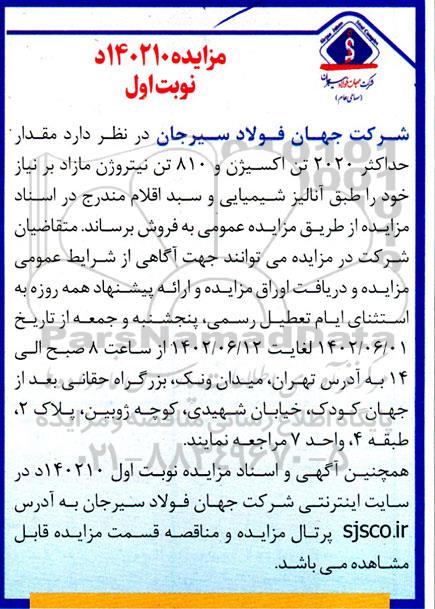 مزایده ۱۴۰۲۱۰د
نوبت اول
شرکت جهان فولاد سیرجان
(سهامی عام)
شرکت جهان فولاد سیرجان در نظر دارد مقدار
حداکثر ۲۰۲۰ تن اکسیژن و ۸۱۰ تن نیتروژن مازاد بر نیاز
خود را طبق آنالیز شیمیایی و سبد اقلام مندرج در اسناد
مزایده از طریق مزایده عمومی به فروش برساند. متقاضیان
شرکت در مزایده می توانند جهت آگاهی از شرایط عمومی
مزایده و دریافت اوراق مزایده و ارائه پیشنهاد همه روزه به
استثنای ایام تعطیل رسمی، پنجشنبه و جمعه از تاریخ
۱۴۰۲/۰۶/۰۱ لغایت ۱۴۰۲/۰۶/۱۲ از ساعت ۸ صبح الی
۱۴ به آدرس تهران، میدان ونک، بزرگراه حقانی بعد از
جهان کودک، خیابان شهیدی، کوچه ژوبین، پلاک ۲،
طبقه ۴، واحد ۷ مراجعه نمایند.
همچنین آگهی و اسناد مزایده نوبت اول ۱۴۰۲۱۰د در
سایت اینترنتی شرکت جهان فولاد سیرجان به آدرس
sjsco.ir پرتال مزایده و مناقصه قسمت مزایده قابل
مشاهده می باشد.
ParsNamadData
پایگاه اطلاع رسانی مناقصه و مزایده
۰۲۱-۸۸۳۴۹۶۷۰-۵